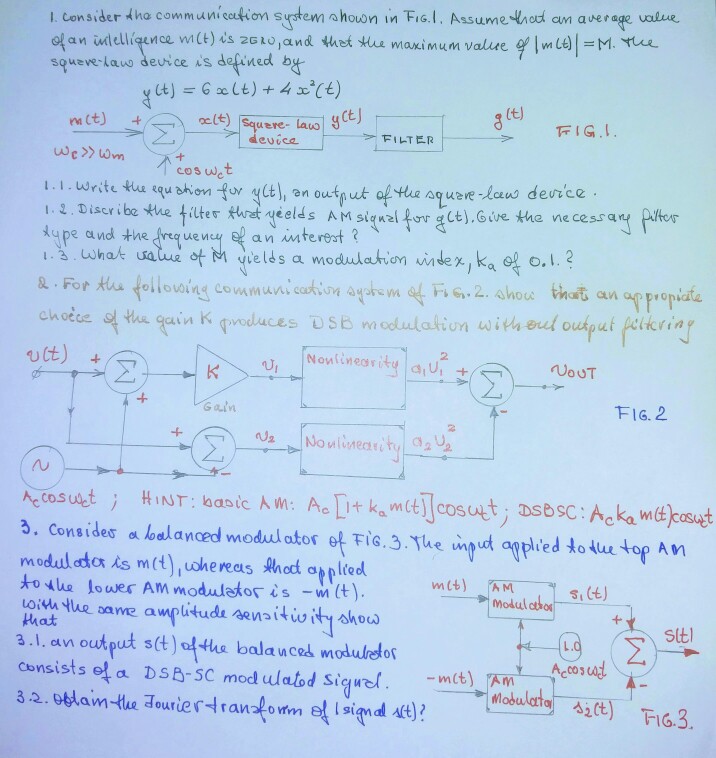 1. Consider the communication system shown in FIG.1. Assume that an average value
of an intelligence m(t) is ZERO, and that the maximum value of |m(t)| = M. The
square-law device is defined by
y(t) = 6x(t) + 4x²(t)
m(t) + Σ x(t) square-law device y(t) FILTER g(t) FIG.1.
ωc >> ωm
+
cosωct
1.1. Write the equation for y(t), an output of the square-law device.
1.2. Discribe the filter that yields AM signal for g(t). Give the necessary filter
type and the frequency of an interest?
1.3. What value of M yields a modulation index, ka of 0.1.?
2. For the following communication system of FIG.2. show that an appropiate
choice of the gain K produces DSB modulation without output filtering
υ(t) + Σ K υ1 Nonlinearity a1υ1² + Σ υOUT
+
Gain
FIG.2
+ Σ υ2 Nonlinearity a2υ2² -
~ -
Accosωct ; HINT: basic AM: Ac[1+kam(t)]cosωct ; DSBSC: Ac ka m(t)cosωct
3. Consider a balanced modulator of FIG.3. The input applied to the top AM
modulator is m(t), whereas that applied
to the lower AM modulator is -m(t).
With the same amplitude sensitivity show
that
3.1. an output s(t) of the balanced modulator
consists of a DSB-SC modulated signal.
3.2. obtain the Fourier transform of signal s(t)?
m(t) AM Modulator s1(t)
+
1.0 Σ s(t)
Accosωct
-
-m(t) AM Modulator s2(t)
FIG.3.